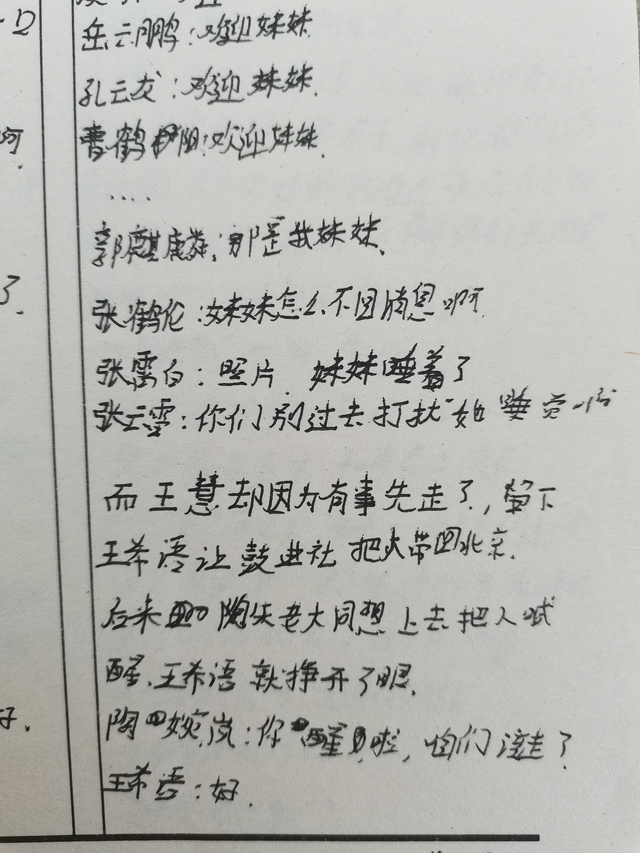 岳云鹏：欢迎妹妹.
孔云龙：欢迎妹妹.
曹鹤阳：欢迎妹妹.
....
郭麒麟：那是我妹妹.
张鹤伦：妹妹怎么不回消息啊
张霄白：照片 妹妹睡着了
张云雷：你们别过去打扰她睡觉
而王慧却因为有事先走了，留下
王希语让鼓曲社把人带回北京.
后来 陶 老大同想上去把人喊
醒.王希语就挣开了眼.
陶婉岚：你醒啦，咱们该走了
王希语：好.
了.
好.